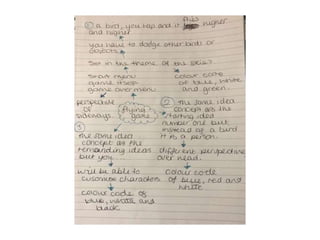 ① a bird, you tap and it flies higher
and higher
you have to dodge other birds or
objects.
Set in the theme of the skies.
Start menu
game itself
game over menu
colour code
of blue, white
and green.
perspective
of
sideways
phone
game
② the same idea
concept as the
starting idea
number one but
instead of a bird
it is a person.
different perspective
over head.
colour code
of blue, red and
white
③
the same idea
concept as the
remaining ideas
but you
will be able to
customise characters
colour code of
blue, white and
black